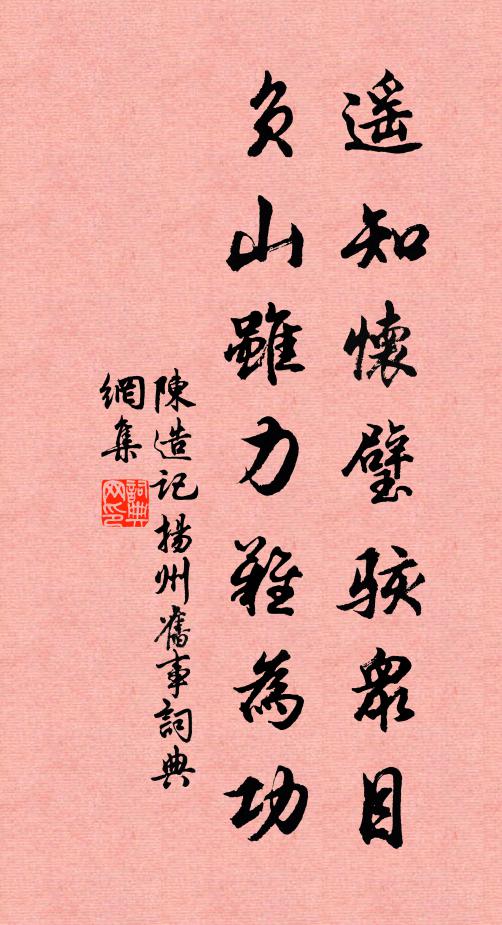 遥知懷璧駭衆目
負山雖力難為功
陳造記揚州舊事詞典
網集
詞典
网印